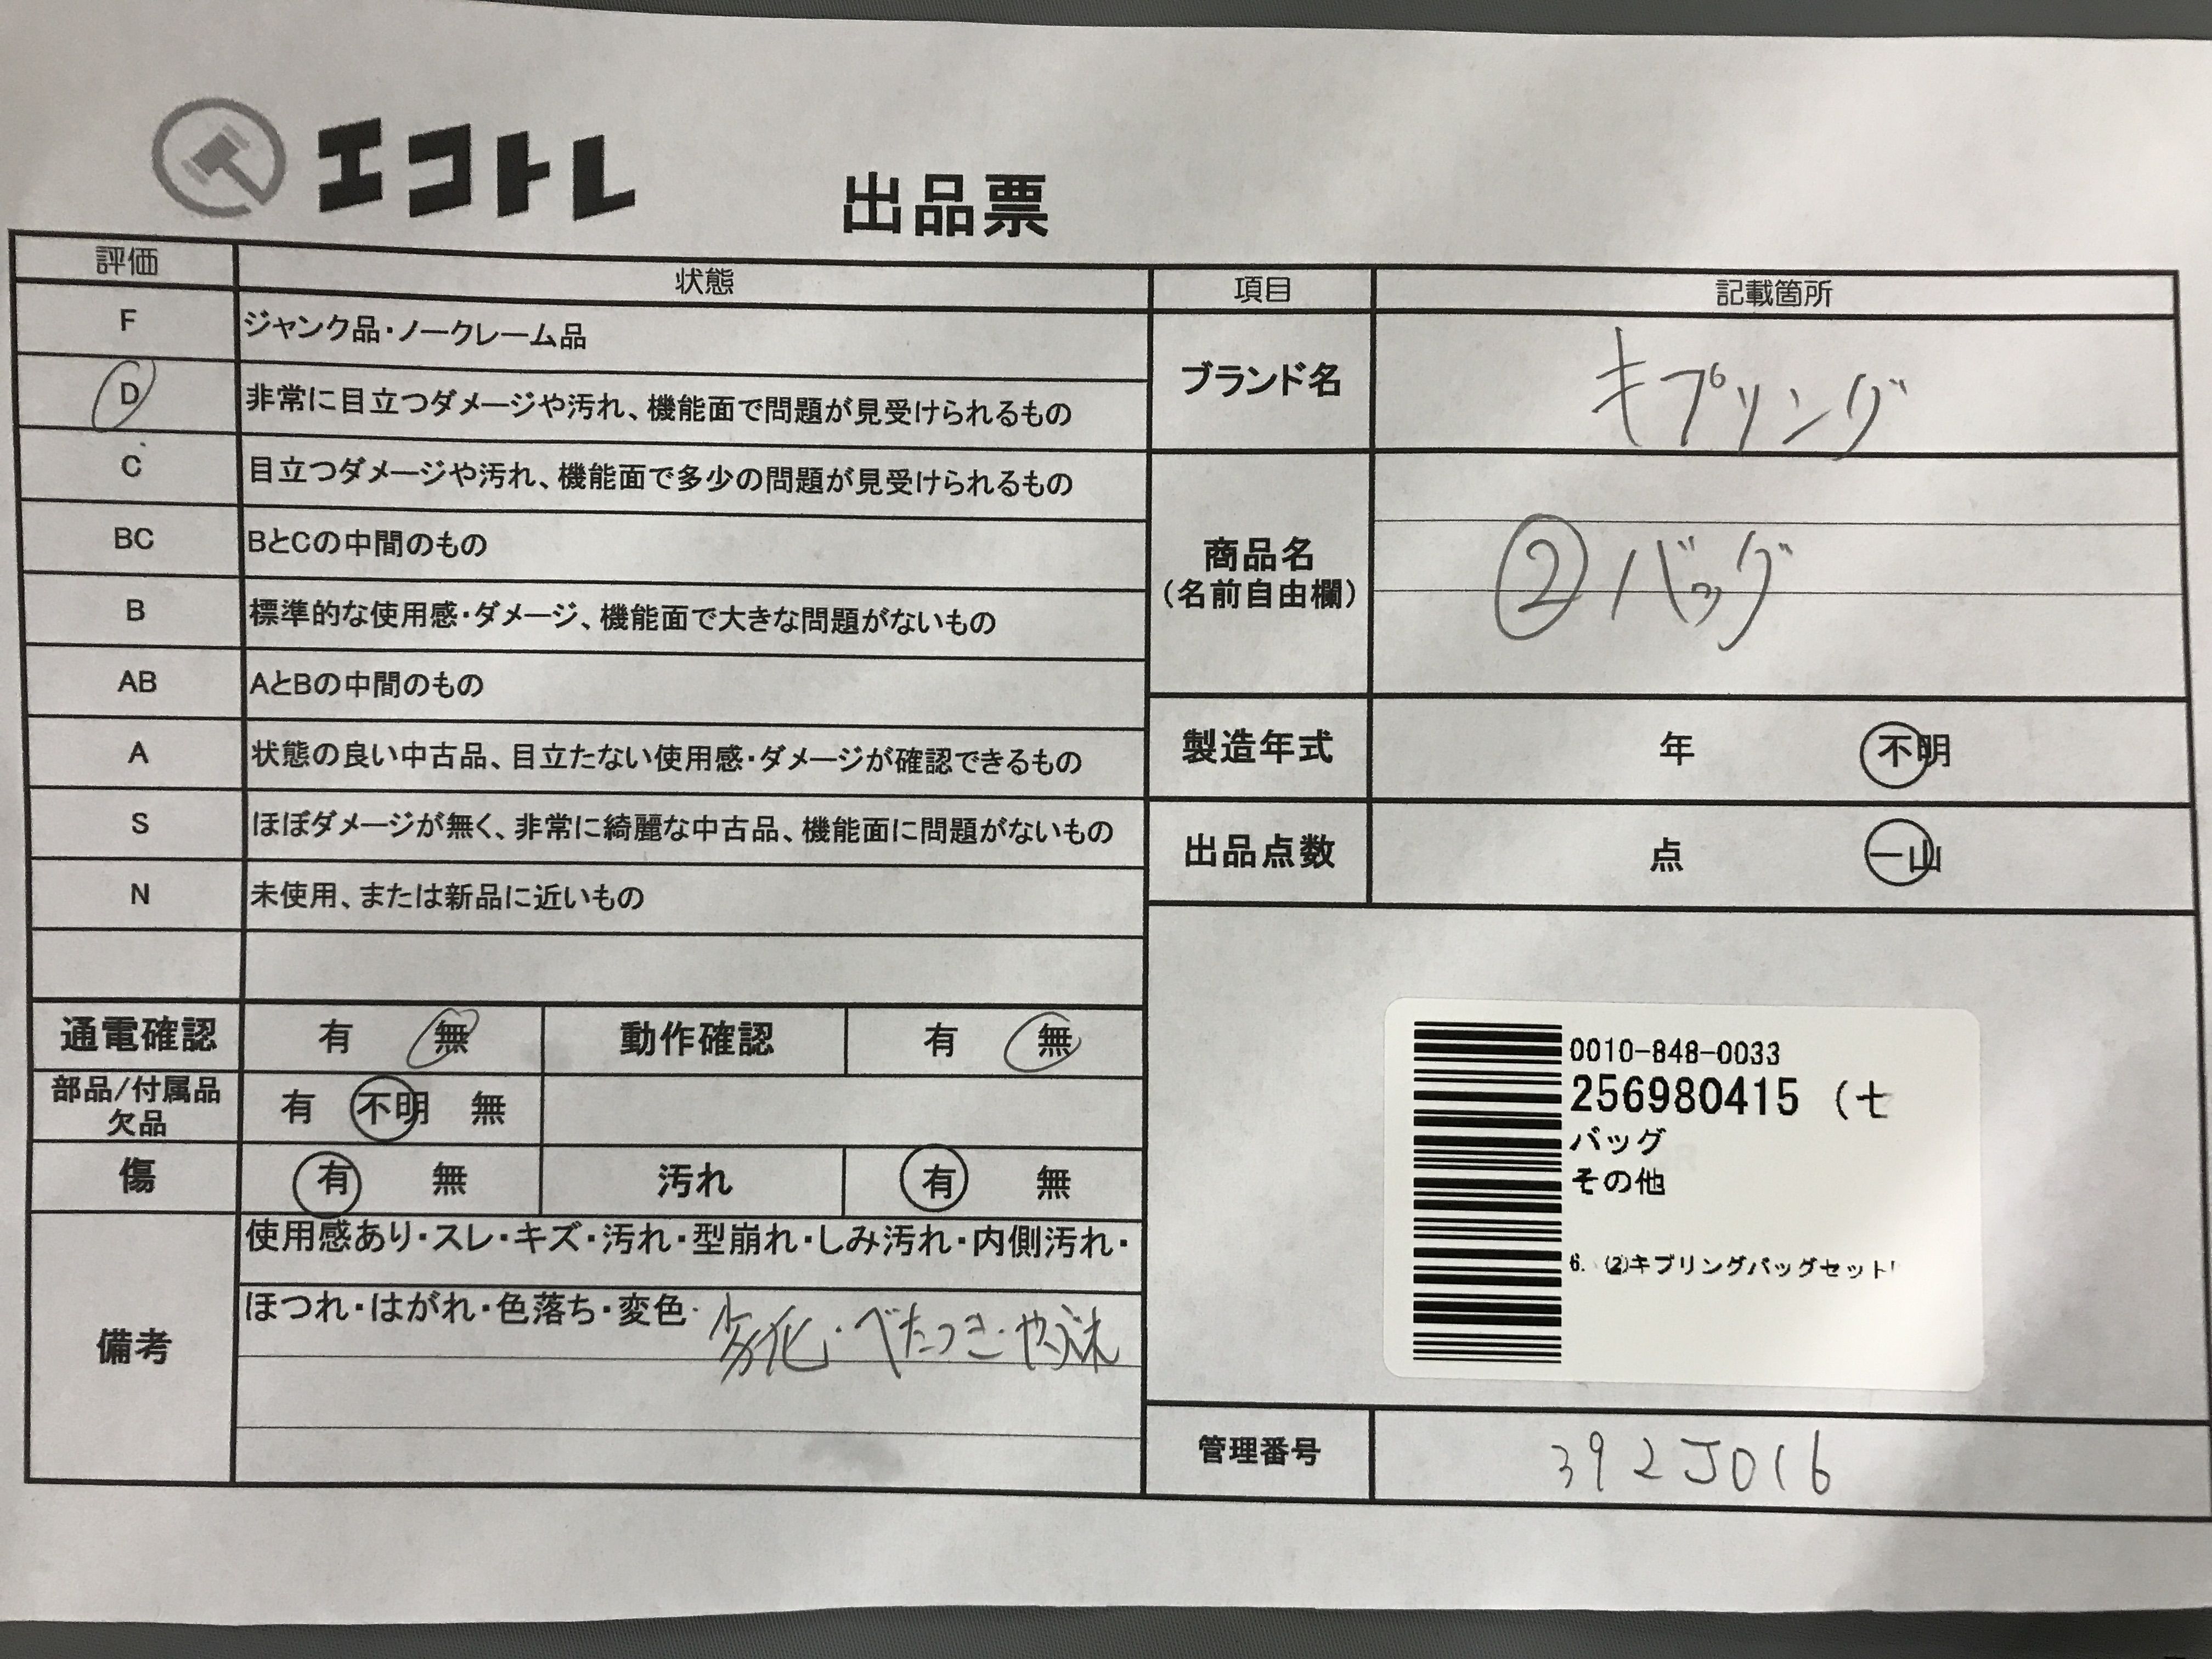 エコトレ 出品票
評価 状態
F ジャンク品・ノークレーム品
D 非常に目立つダメージや汚れ、機能面で問題が見受けられるもの
C 目立つダメージや汚れ、機能面で多少の問題が見受けられるもの
BC BとCの中間のもの
B 標準的な使用感・ダメージ、機能面で大きな問題がないもの
AB AとBの中間のもの
A 状態の良い中古品、目立たない使用感・ダメージが確認できるもの
S ほぼダメージが無く、非常に綺麗な中古品、機能面に問題がないもの
N 未使用、または新品に近いもの
通電確認 有 無 動作確認 有 無
部品/付属品
欠品 有 不明 無
傷 有 無 汚れ 有 無
備考
使用感あり・スレ・キズ・汚れ・型崩れ・しみ汚れ・内側汚れ・
ほつれ・はがれ・色落ち・変色・劣化・べたつき・やぶれ
項目 記載箇所
ブランド名 キプリング
商品名
(名前自由欄) ②バッグ
製造年式 年 不明
出品点数 点 一山
0010-848-0033
256980415 (七
バッグ
その他
6. (2)キプリングバッグセット
管理番号 392J016